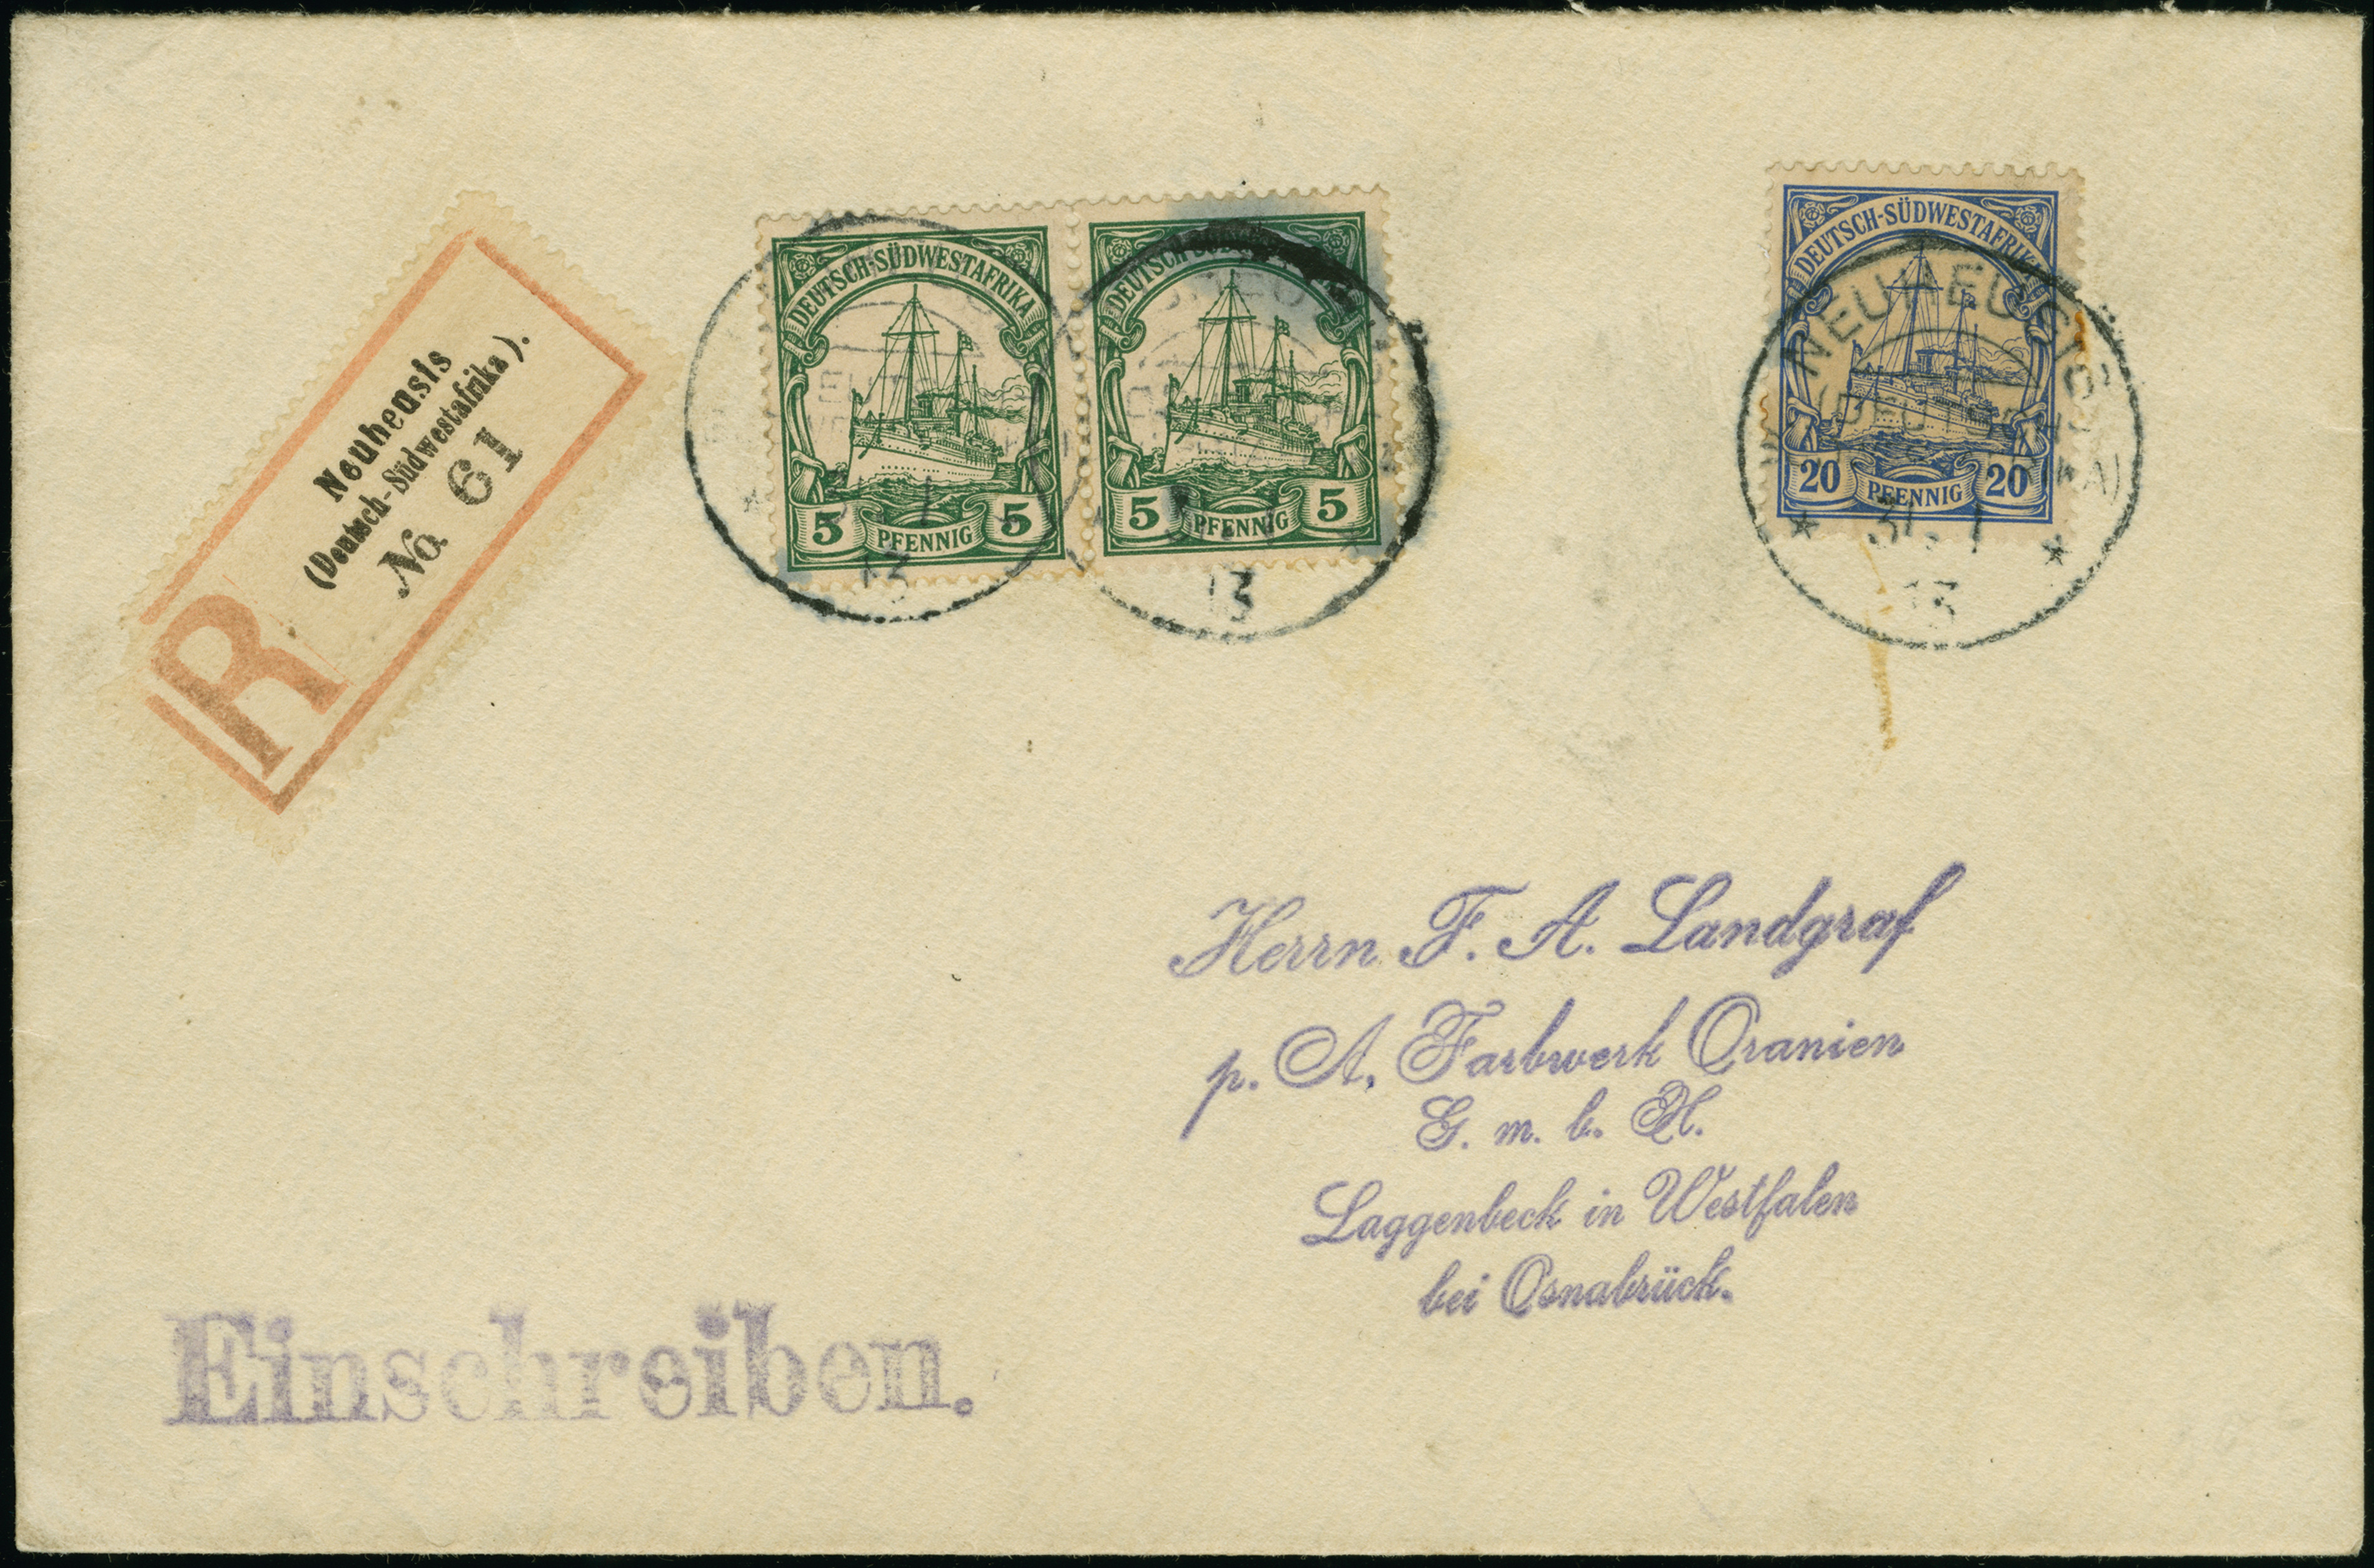 Neuheusis
(Deutsch-Südwestafrika).
No. 61
R
DEUTSCH-SÜDWESTAFRIKA
5 PFENNIG 5
DEUTSCH-
5 PFENNIG 5
1
13
13
DEUTSCH-SÜDWESTAFRIKA
20 PFENNIG 20
NEUHEUSIS
31. 1
13
Herrn F. A. Landgraf
p. A. Farbwerk Oranien
G. m. b. H.
Laggenbeck in Westfalen
bei Osnabrück.
Einschreiben.